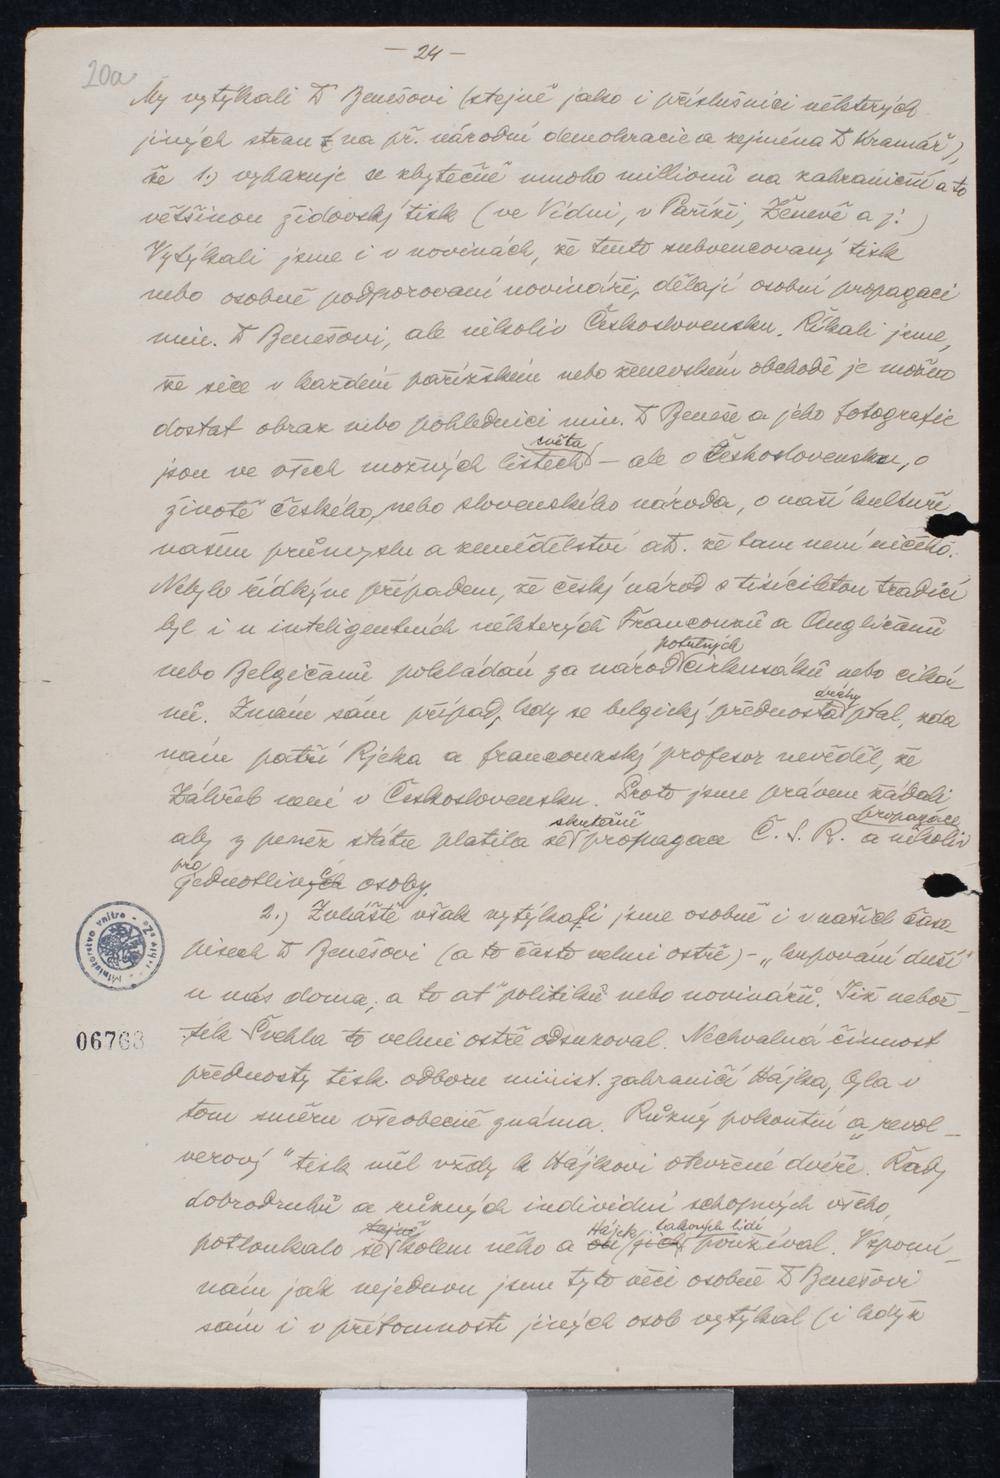 — 24 —
20a
My vytýkali Dr Benešovi (stejně jako i příslušníci některých
jiných stran z na př. národní demokracie a zejména Dr Kramář),
že 1.) vyhazuje se zbytečně mnoho millionů na zahraniční a to
většinou židovský tisk (ve Vídni, v Paříži, Ženevě a j.)
Vytýkali jsme i v novinách, že tento subvencovaný tisk
nebo osobně podporovaní novináři, dělají osobní propagaci
min. Dr Benešovi, ale nikoliv Československu. Říkali jsme,
že sice v každém pařížském nebo ženevském obchodě je možno
dostat obraz nebo pohlednici min. Dr Beneše a jeho fotografie
světa
jsou ve všech možných listech – ale o Československu, o
životě českého, nebo slovenského národa, o naší kultuře
našem průmyslu a zemědělství atd. že tam není ničeho.
Nebylo řídkým případem, že český národ s tisíciletou tradicí
byl i u inteligentních některých Francouzů a Angličanů
potulných
nebo Belgičanů pokládán za národ cirkusáků nebo ciká-
druhy
nů. Znám sám případ, kdy se belgický přednosta ptal, zda
nám patří Rjeka a francouzský profesor nevěděl, že
Záhřeb není v Československu. Proto jsme právem žádali
skutečně propagace
aby z peněz státu platila se propagace Č. S. R. a nikoliv
pro
jednotlivých osoby.
2.) Zvláště však vytýkali jsme osobně i v našich časo-
pisech Dr Benešovi (a to často velmi ostře) – „kupování duší"
u nás doma, a to ať politiků nebo novinářů. Též nebož-
tík Švehla to velmi ostře odsuzoval. Nechvalná činnost
přednosty tisk. odboru minist. zahraničí Hájka, byla v
tom směru všeobecně známa. Různý pokoutní a „revol-
verový" tisk měl vždy k Hájkovi otevřené dvéře. Řady
dobrodruhů a různých individuí schopných všeho,
tajně Hájek takových lidí
potloukalo se kolem něho a on jich používal. Vzpomí-
nám jak nejednou jsem tyto věci osobně Dr Benešovi
sám i v přítomnosti jiných osob vytýkal (i když
Ministerstvo vnitra
06763